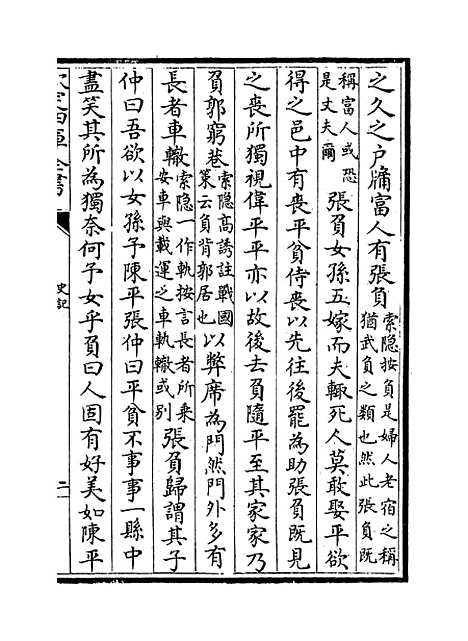 之久之戶牖富人有張負索隱按負是婦人老宿之稱猶武負之類也然此張負既
稱富人或恐是丈夫爾張負女孫五嫁而夫輒死人莫敢娶平欲
得之邑中有喪平貧侍喪以先往後罷為助張負既見
之喪所獨視偉平平亦以故後去負隨平至其家家乃
負郭窮巷索隱高誘註戰國策云負背郭居也以弊席為門然門外多有
長者車轍索隱一作軌按言長者所乘安車與載運之車軌轍或别張負歸謂其子
仲曰吾欲以女孫予陳平張仲曰平貧不事事一縣中
盡笑其所為獨奈何予女乎負曰人固有好美如陳平
史記